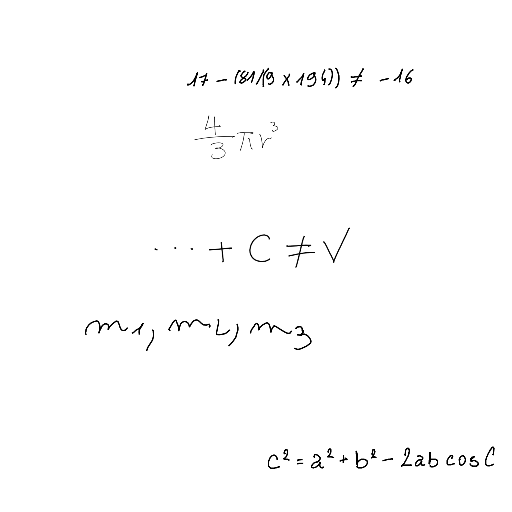 17 - (81/(9 × 194)) ≠ -16
4/3 πr³
··· + C ≠ V
m1, m2, m3
c² = a² + b² - 2ab cos C